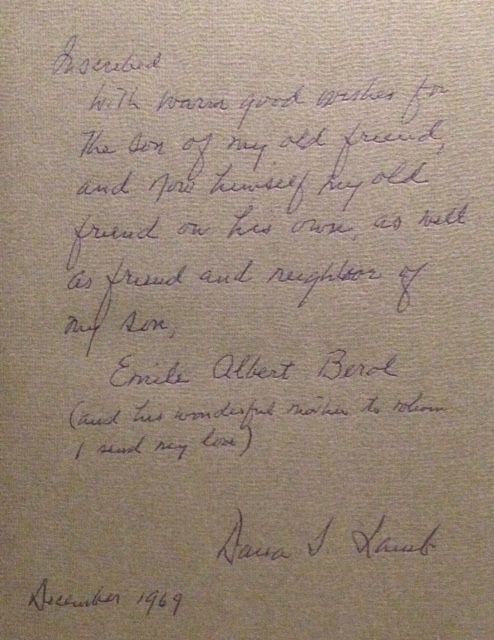 Inscribed
With warm good wishes for
the son of my old friend,
and now himself my old
friend on his own, as well
as friend and neighbor of
my son,
Emile Albert Berol
(and his wonderful mother to whom
I send my love)
Dana S Lamb
December 1969